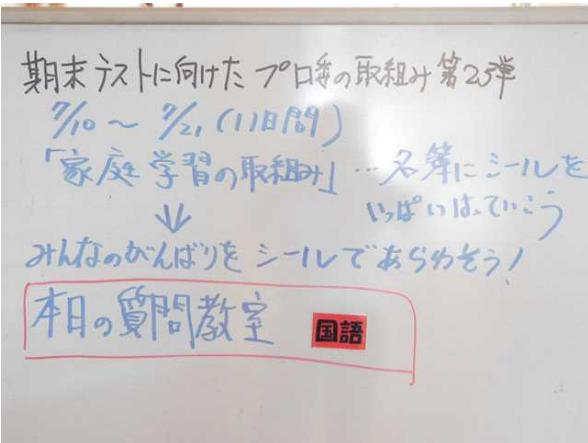 期末テストに向けたプロ委の取組み第2弾
7/10～7/21(11日間)
「家庭学習の取組み」…名簿にシールを
いっぱいはっていこう
みんなのがんばりをシールであらわそう!
本日の質問教室 国語